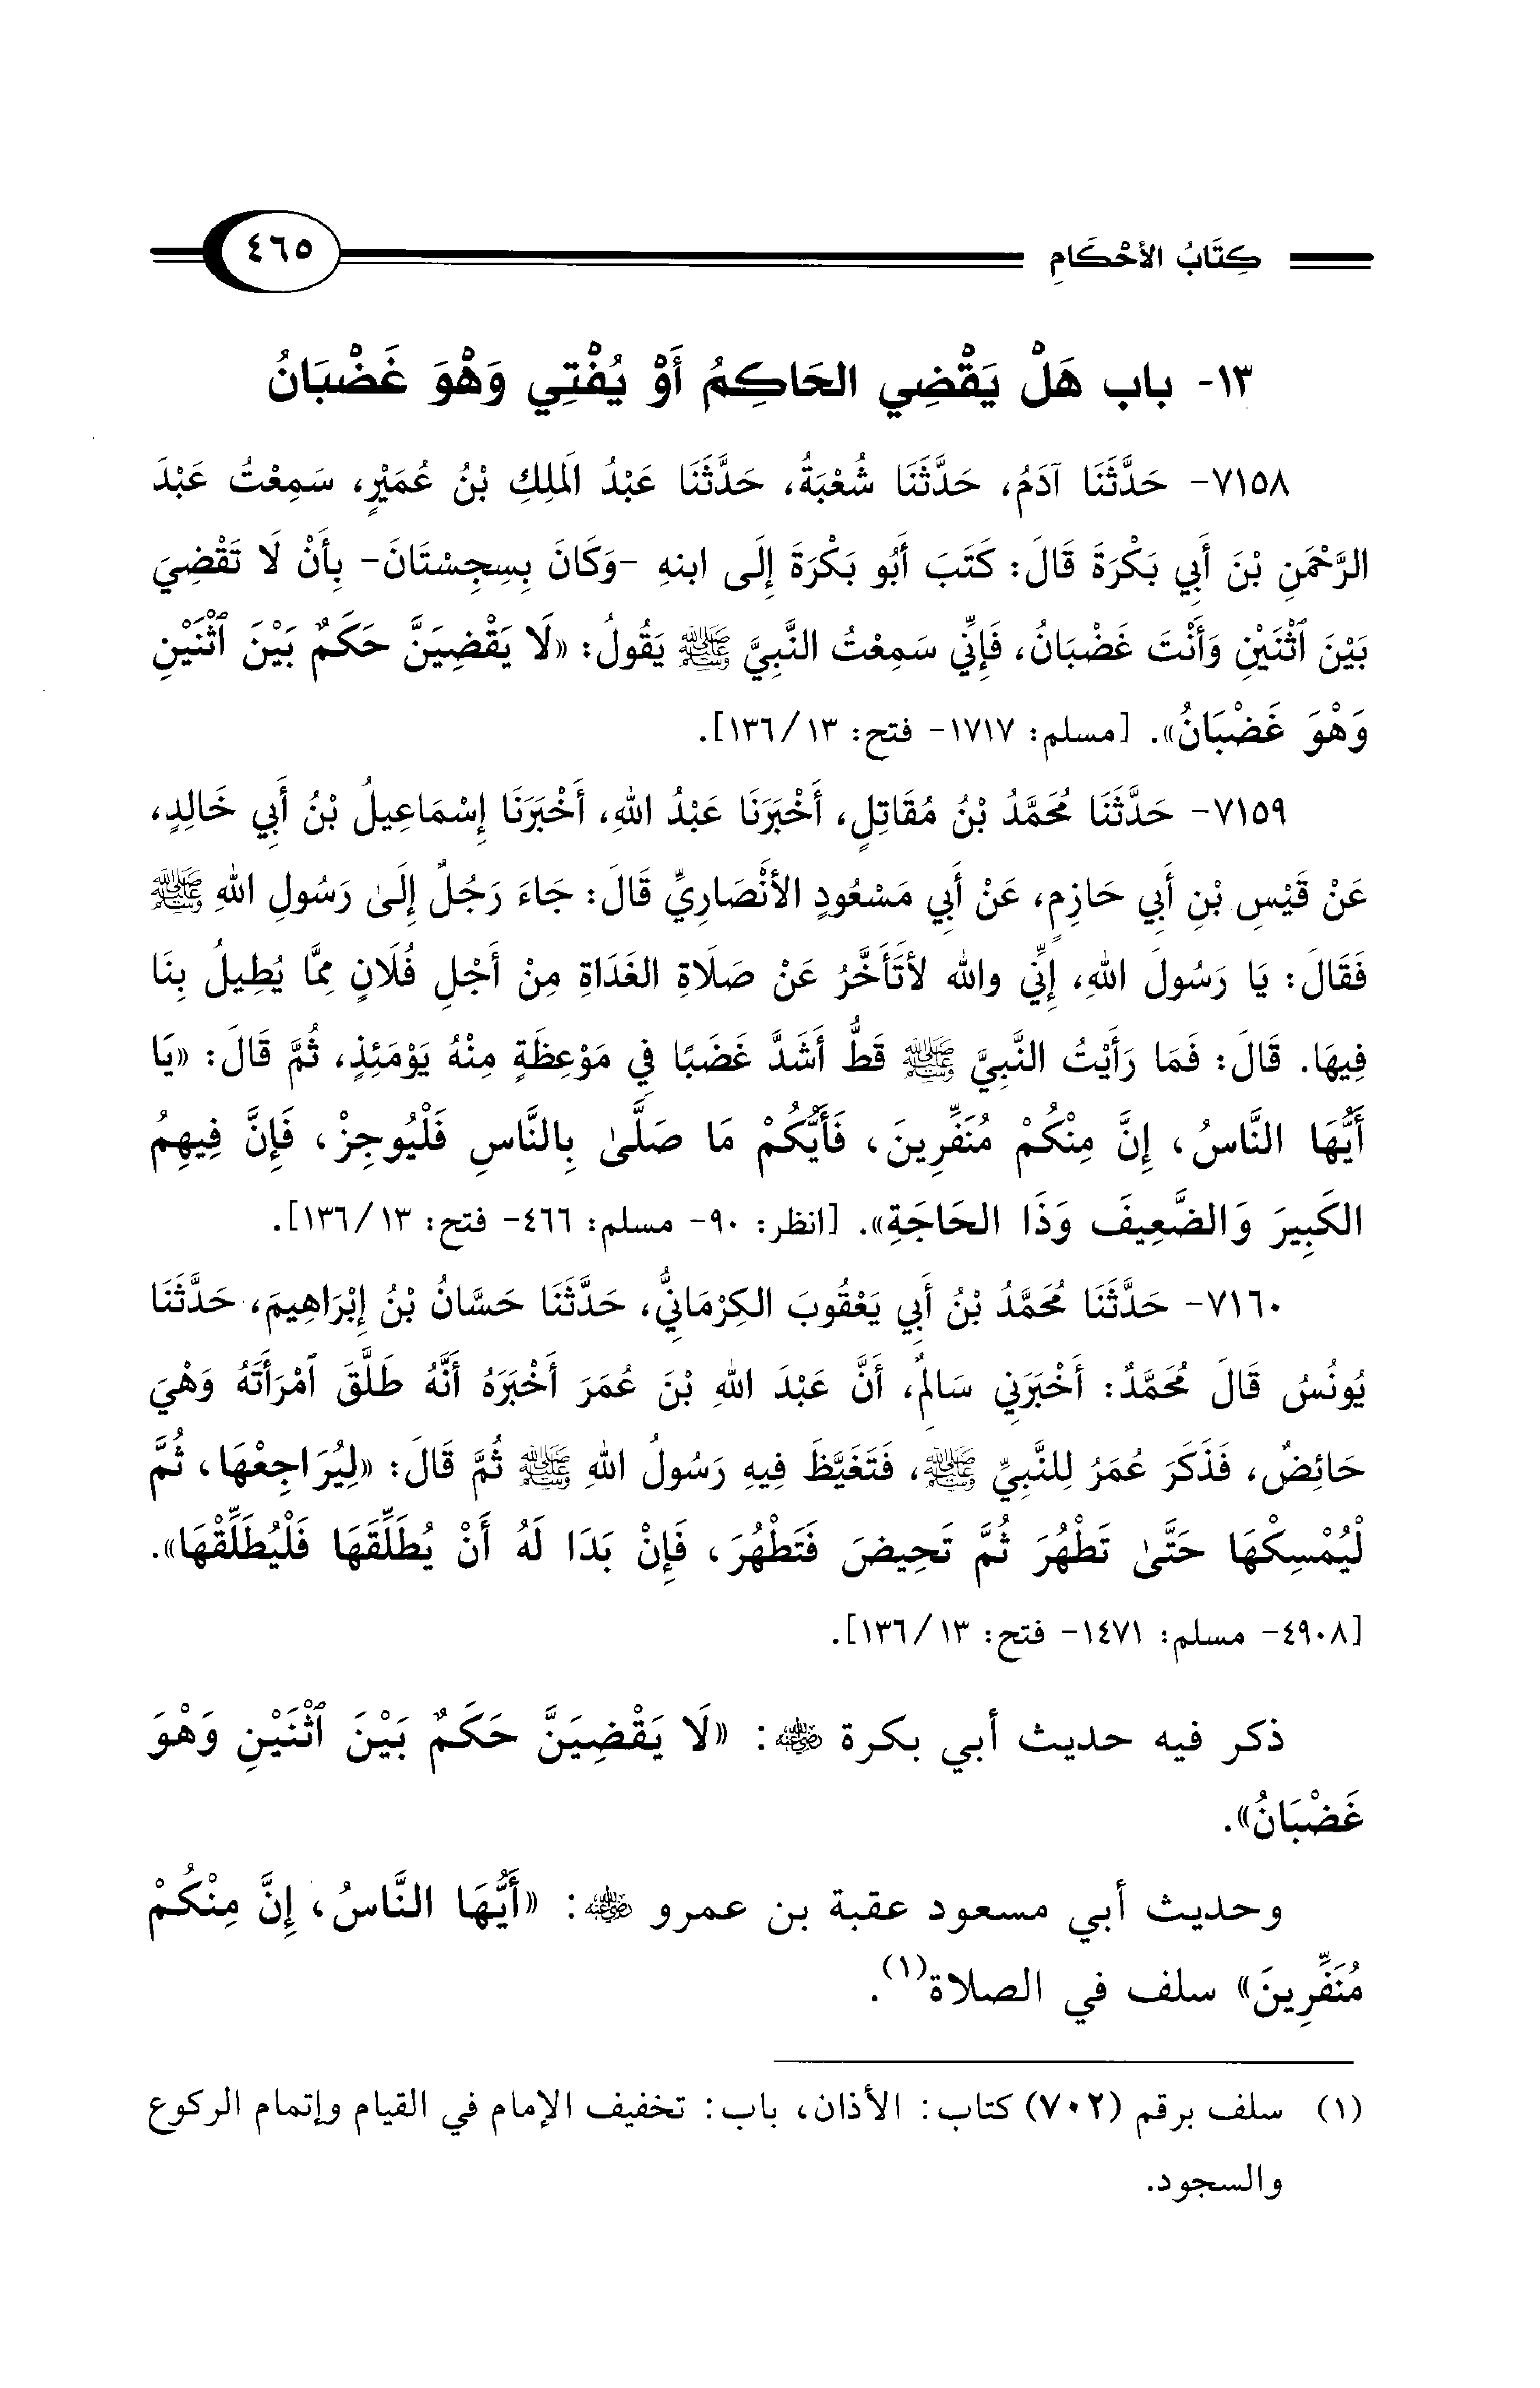 كِتَابُ الأَحْكَامِ ٤٦٥
١٣- باب هَلْ يَقْضِي الحَاكِمُ أَوْ يُفْتِي وَهْوَ غَضْبَانُ
٧١٥٨- حَدَّثَنَا آدَمُ، حَدَّثَنَا شُعْبَةُ، حَدَّثَنَا عَبْدُ المَلِكِ بْنُ عُمَيْرٍ، سَمِعْتُ عَبْدَ
الرَّحْمَنِ بْنَ أَبِي بَكْرَةَ قَالَ: كَتَبَ أَبُو بَكْرَةَ إِلَى ابنهِ -وَكَانَ بِسِجِسْتَانَ- بِأَنْ لَا تَقْضِيَ
بَيْنَ ٱثْنَيْنِ وَأَنْتَ غَضْبَانُ، فَإِنِّي سَمِعْتُ النَّبِيَّ ﷺ يَقُولُ: «لَا يَقْضِيَنَّ حَكَمٌ بَيْنَ ٱثْنَيْنِ
وَهْوَ غَضْبَانُ». [مسلم: ١٧١٧- فتح: ١٣/ ١٣٦].
٧١٥٩- حَدَّثَنَا مُحَمَّدُ بْنُ مُقَاتِلٍ، أَخْبَرَنَا عَبْدُ اللهِ، أَخْبَرَنَا إِسْمَاعِيلُ بْنُ أَبِي خَالِدٍ،
عَنْ قَيْسِ بْنِ أَبِي حَازِمٍ، عَنْ أَبِي مَسْعُودٍ الأَنْصَارِيِّ قَالَ: جَاءَ رَجُلٌ إِلَىٰ رَسُولِ اللهِ ﷺ
فَقَالَ: يَا رَسُولَ اللهِ، إِنِّي والله لأَتَأَخَّرُ عَنْ صَلَاةِ الغَدَاةِ مِنْ أَجْلِ فُلَانٍ مِمَّا يُطِيلُ بِنَا
فِيهَا. قَالَ: فَمَا رَأَيْتُ النَّبِيَّ ﷺ قَطُّ أَشَدَّ غَضَبًا فِي مَوْعِظَةٍ مِنْهُ يَوْمَئِذٍ، ثُمَّ قَالَ: «يَا
أَيُّهَا النَّاسُ، إِنَّ مِنْكُمْ مُنَفِّرِينَ، فَأَيُّكُمْ مَا صَلَّىٰ بِالنَّاسِ فَلْيُوجِزْ، فَإِنَّ فِيهِمُ
الكَبِيرَ وَالضَّعِيفَ وَذَا الحَاجَةِ». [انظر: ٩٠- مسلم: ٤٦٦- فتح: ١٣/ ١٣٦].
٧١٦٠- حَدَّثَنَا مُحَمَّدُ بْنُ أَبِي يَعْقُوبَ الكِرْمَانِيُّ، حَدَّثَنَا حَسَّانُ بْنُ إِبْرَاهِيمَ، حَدَّثَنَا
يُونُسُ قَالَ مُحَمَّدٌ: أَخْبَرَنِي سَالِمٌ، أَنَّ عَبْدَ اللهِ بْنَ عُمَرَ أَخْبَرَهُ أَنَّهُ طَلَّقَ ٱمْرَأَتَهُ وَهْيَ
حَائِضٌ، فَذَكَرَ عُمَرُ لِلنَّبِيِّ ﷺ، فَتَغَيَّظَ فِيهِ رَسُولُ اللهِ ﷺ ثُمَّ قَالَ: «لِيُرَاجِعْهَا، ثُمَّ
لْيُمْسِكْهَا حَتَّىٰ تَطْهُرَ ثُمَّ تَحِيضَ فَتَطْهُرَ، فَإِنْ بَدَا لَهُ أَنْ يُطَلِّقَهَا فَلْيُطَلِّقْهَا».
[٤٩٠٨- مسلم: ١٤٧١- فتح: ١٣/ ١٣٦].
ذكر فيه حديث أبي بكرة رضي الله عنه: «لَا يَقْضِيَنَّ حَكَمٌ بَيْنَ ٱثْنَيْنِ وَهْوَ
غَضْبَانُ».
وحديث أبي مسعود عقبة بن عمرو رضي الله عنه: «أَيُّهَا النَّاسُ، إِنَّ مِنْكُمْ
مُنَفِّرِينَ» سلف في الصلاة(١).
(١) سلف برقم (٧٠٢) كتاب: الأذان، باب: تخفيف الإمام في القيام وإتمام الركوع
والسجود.